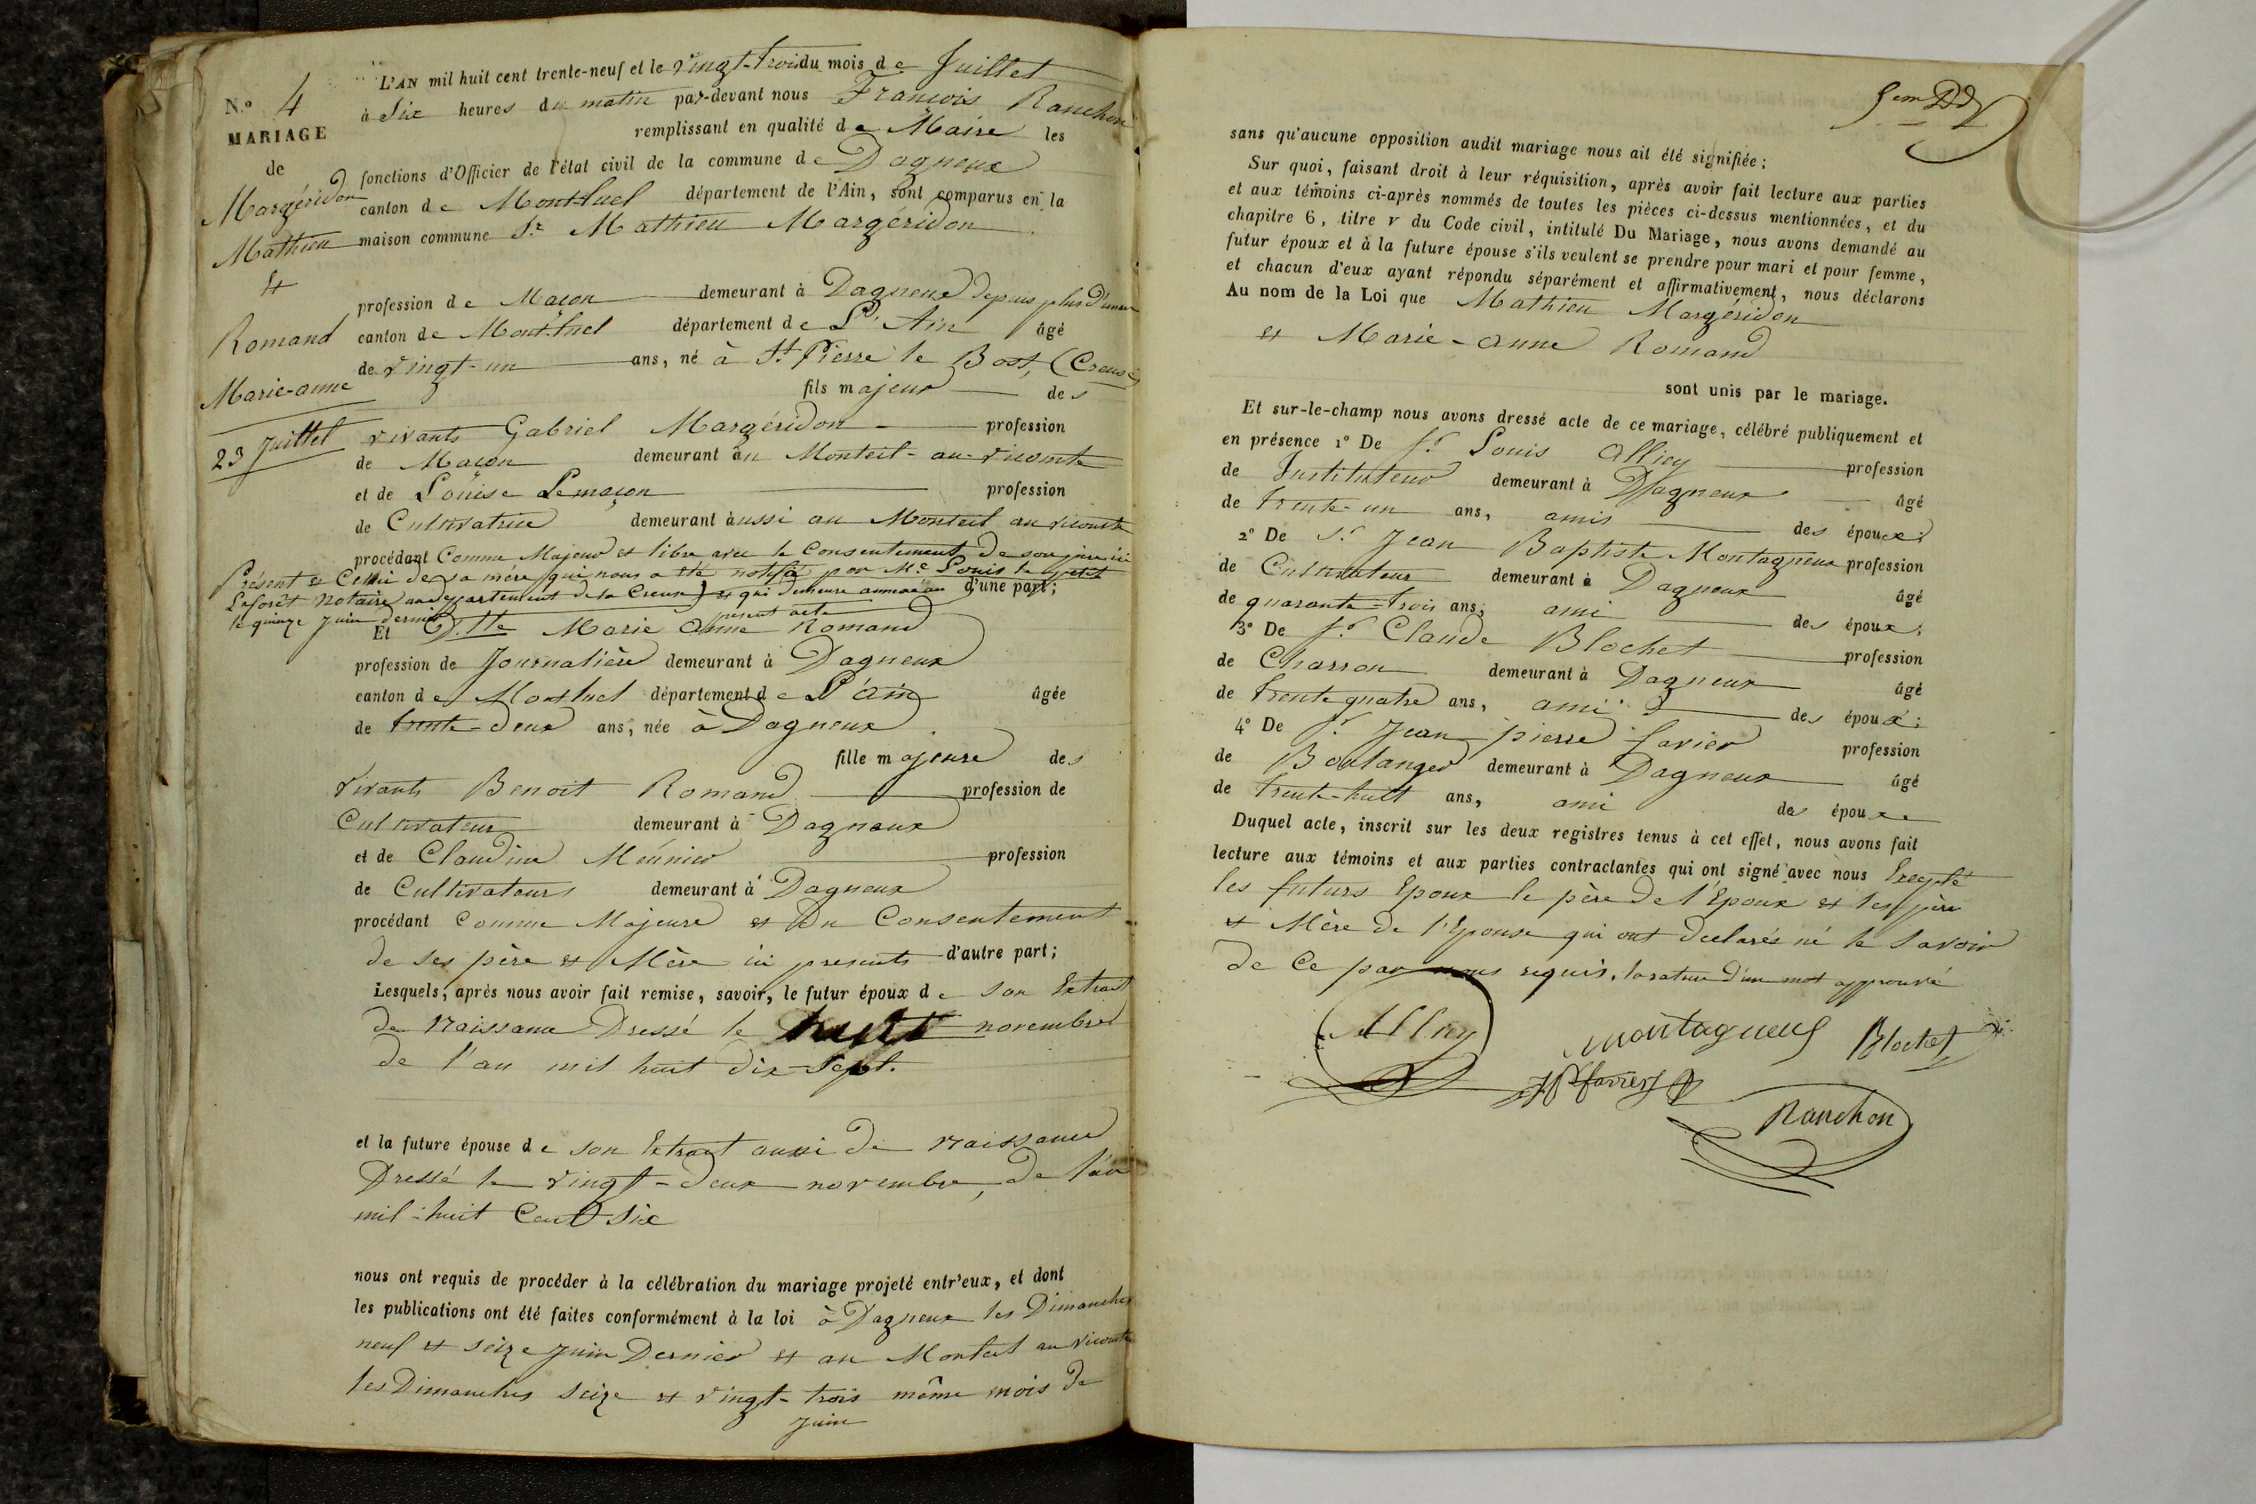 N.º 4
MARIAGE
de
Margéridon
Mathieu
&
Romand
Marie-anne
23 Juillet
L'AN mil huit cent trente-neuf et le vingt-trois du mois de Juillet
à Six heures du matin par-devant nous François Ranchon
remplissant en qualité de Maire les
fonctions d'Officier de l'état civil de la commune de Dagneux
canton de Montluel département de l'Ain, sont comparus en la
maison commune Sr. Mathieu Margéridon
profession de Maçon demeurant à Dagneux depuis plus d'un an
canton de Montluel département de L'Ain âgé
de vingt-un ans, né à St Pierre le Bost, (Creuse)
fils majeur des
vivants Gabriel Margéridon profession
de Maçon demeurant au Monteil-au-vicomte
et de Louise Lemaçon profession
de Cultivatrice demeurant aussi au Monteil au vicomte
procédant Comme Majeur et libre avec le Consentement de son père ici
Présent et Celui de sa mère qui nous a été notifié par Me. Louis le
Laforêt Notaire au département de la Creuse et qui demeure annexé au d'une part;
le quinze Juin dernier present acte
Et Dlle Marie Anne Romand
profession de Journalière demeurant à Dagneux
canton de Montluel département de L'ain âgée
de trente-deux ans, née à Dagneux
fille majeure des
vivants Benoit Romand profession de
Cultivateur demeurant à Dagneux
et de Claudine Meúnier profession
de Cultivateurs demeurant à Dagneux
procédant Comme Majeure et du Consentement
de ses père et Mère ici presents d'autre part;
Lesquels, après nous avoir fait remise, savoir, le futur époux de son Extrait
de Naissance Dressé le huit novembre
de l'an mil huit dix-sept.
et la future épouse de son Extrait aussi de Naissance
Dressé le vingt-deux novembre, de l'an
mil-huit Cent Six
nous ont requis de procéder à la célébration du mariage projeté entr'eux, et dont
les publications ont été faites conformément à la loi à Dagneux les Dimanches
neuf et seize juin Dernier et au Monteil au vicomte
les Dimanches seize et vingt-trois même mois de
Juin
sans qu'aucune opposition audit mariage nous ait été signifiée;
Sur quoi, faisant droit à leur réquisition, après avoir fait lecture aux parties
et aux témoins ci-après nommés de toutes les pièces ci-dessus mentionnées, et du
chapitre 6, titre V du Code civil, intitulé Du Mariage, nous avons demandé au
futur époux et à la future épouse s'ils veulent se prendre pour mari et pour femme,
et chacun d'eux ayant répondu séparément et affirmativement, nous déclarons
Au nom de la Loi que Mathieu Margéridon
et Marie-anne Romand
sont unis par le mariage.
Et sur-le-champ nous avons dressé acte de ce mariage, célébré publiquement et
en présence 1º De Sr Louis Alliey profession
de Instituteur demeurant à Dagneux âgé
de trente-un ans, amis des époux;
2º De Sr Jean Baptiste Montagneux profession
de Cultivateur demeurant à Dagneux âgé
de quarante-trois ans, ami des époux;
3º De Sr Claude Blochet profession
de Charron demeurant à Dagneux âgé
de trente quatre ans, ami des époux;
4º De Sr Jean pierre favier profession
de Boulanger demeurant à Dagneux âgé
de trente-huit ans, ami des époux
Duquel acte, inscrit sur les deux registres tenus à cet effet, nous avons fait
lecture aux témoins et aux parties contractantes qui ont signé avec nous Excepté
les futurs Epoux le père de l'Epoux et les père
et Mère de l'Epouse qui ont declarés né le savoir
de Ce par nous requis. la rature d'un mot approuvé
Alliey
Montagneux
Blochet
JP favier
Ranchon